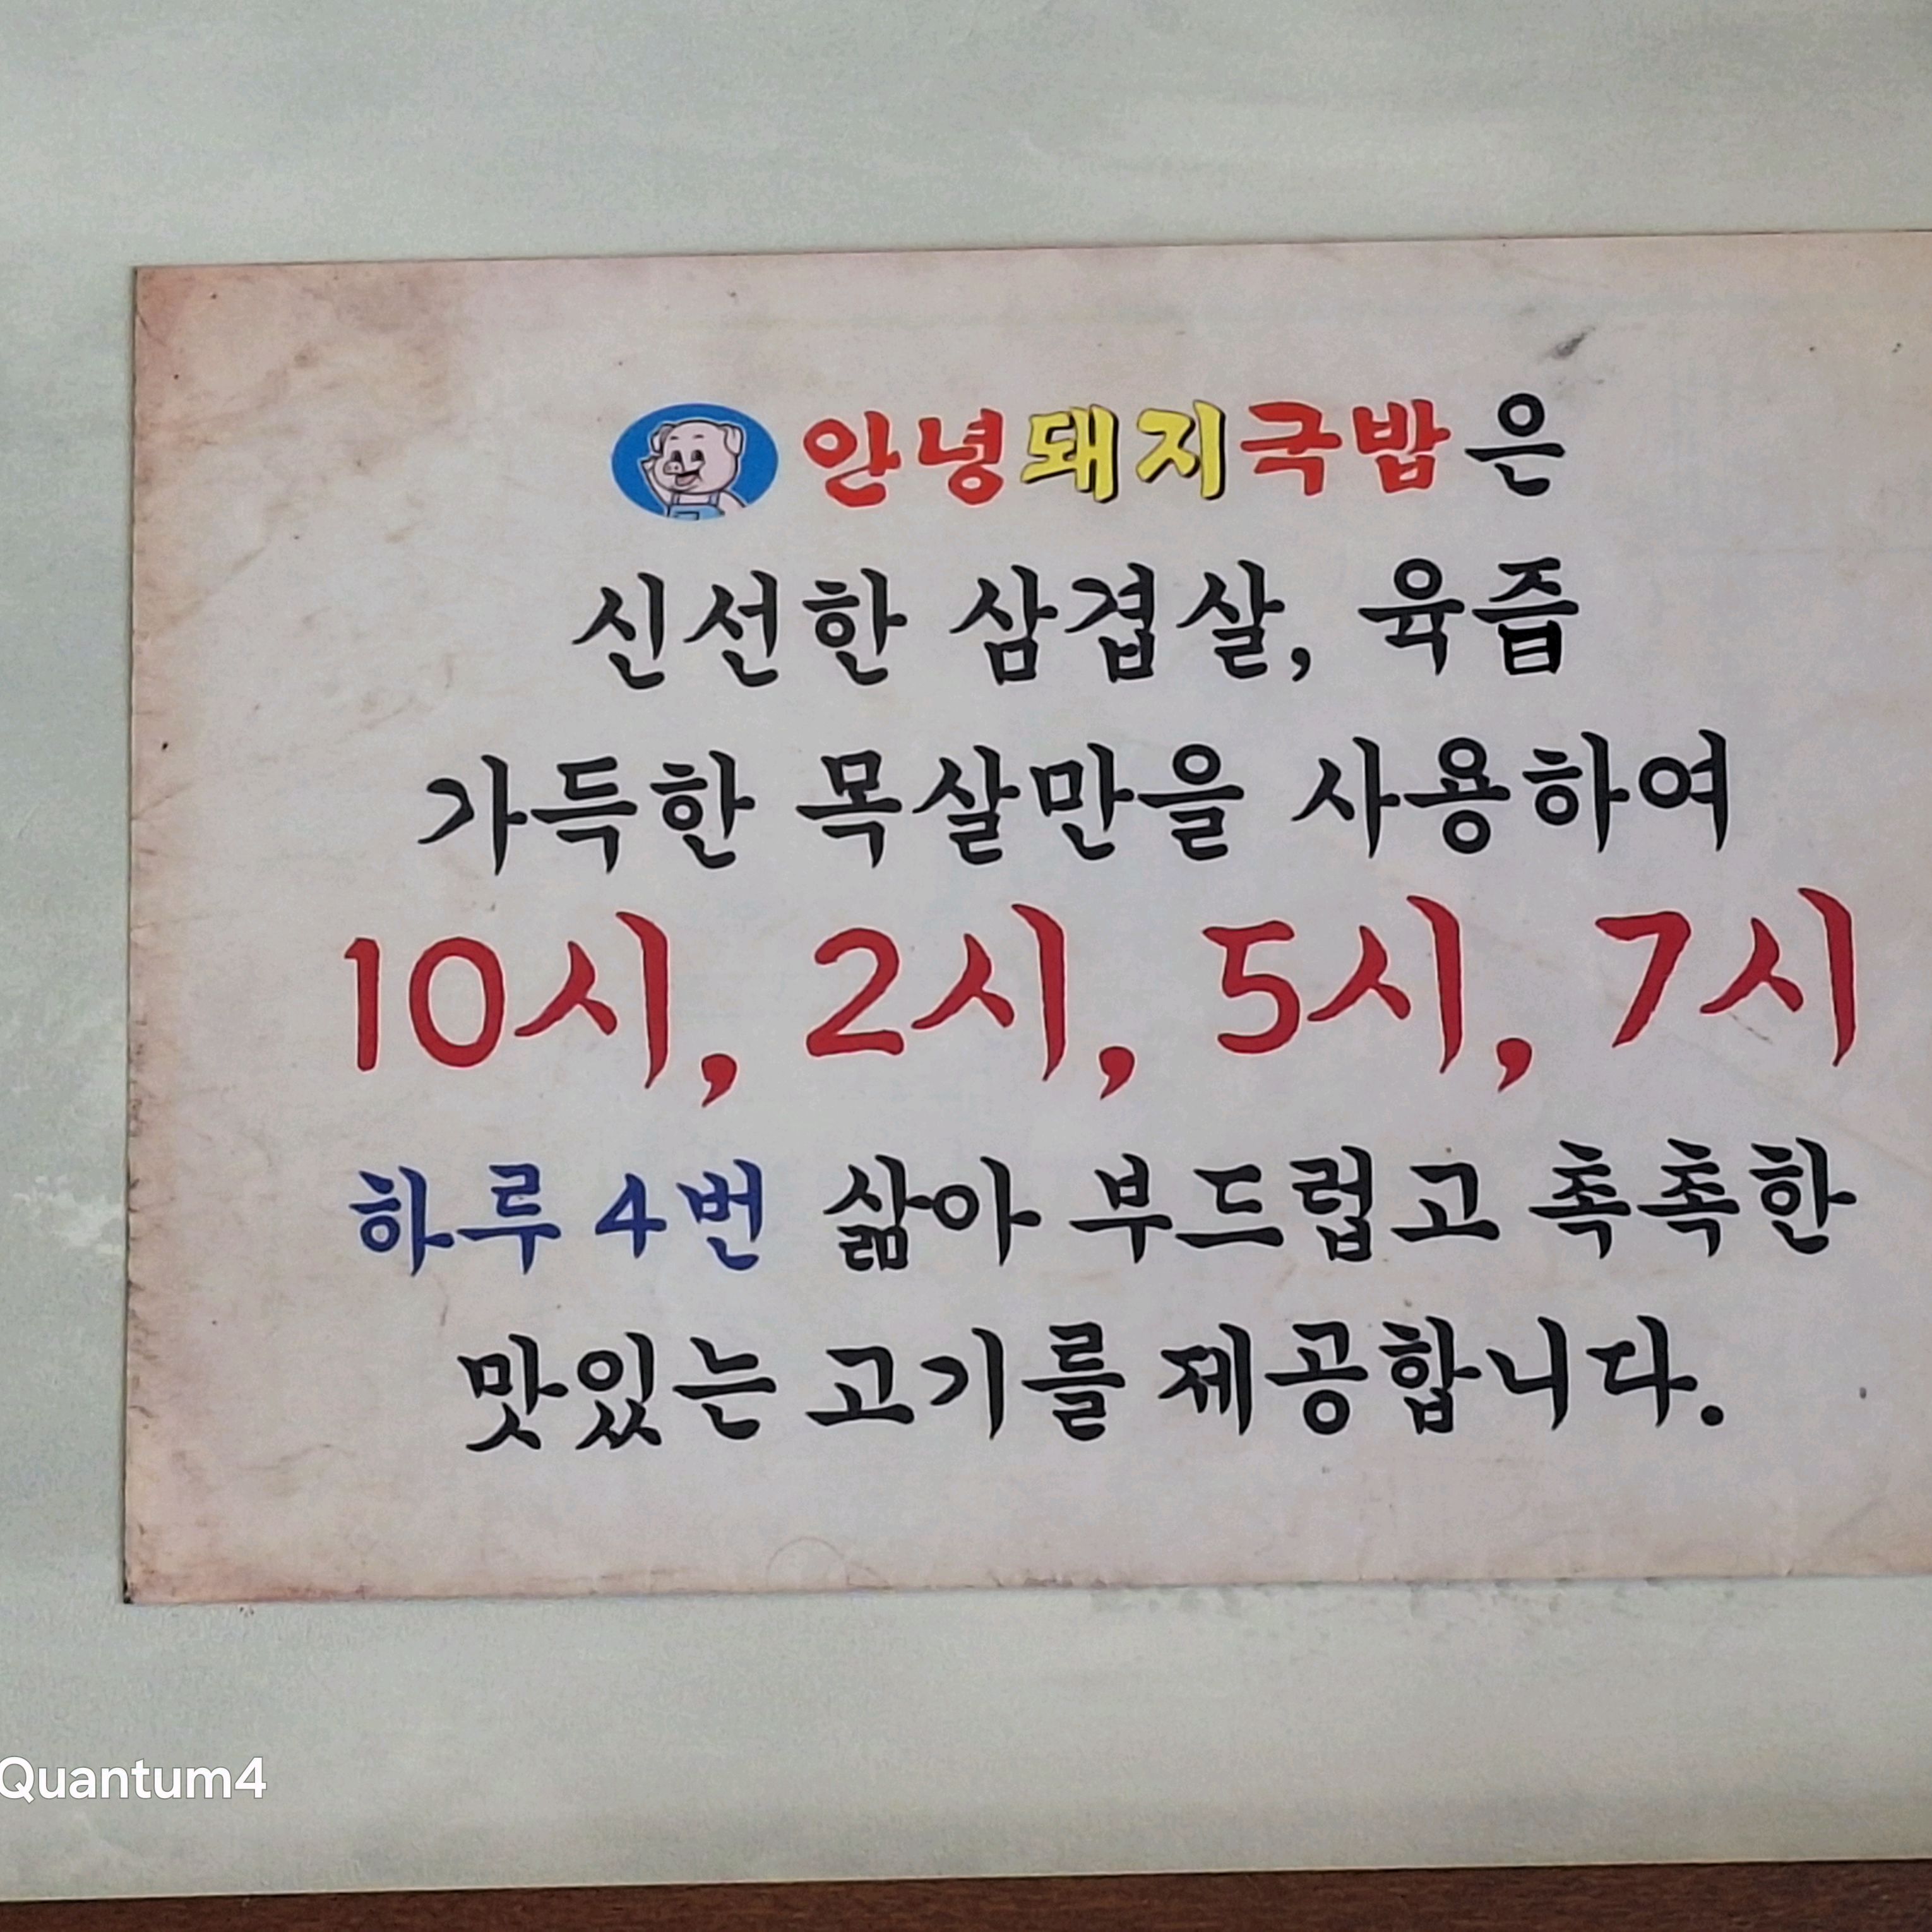 안녕돼지국밥은
신선한 삼겹살, 육즙
가득한 목살만을 사용하여
10시, 2시, 5시, 7시
하루 4번 삶아 부드럽고 촉촉한
맛있는 고기를 제공합니다.
Quantum4